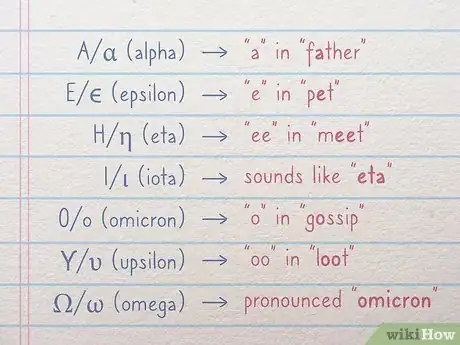 A/α (alpha) → "a" in "father"
E/ϵ (epsilon) → "e" in "pet"
H/η (eta) → "ee" in "meet"
I/ι (iota) → sounds like "eta"
O/o (omicron) → "o" in "gossip"
Υ/υ (upsilon) → "oo" in "loot"
Ω/ω (omega) → pronounced "omicron"
wikiHow